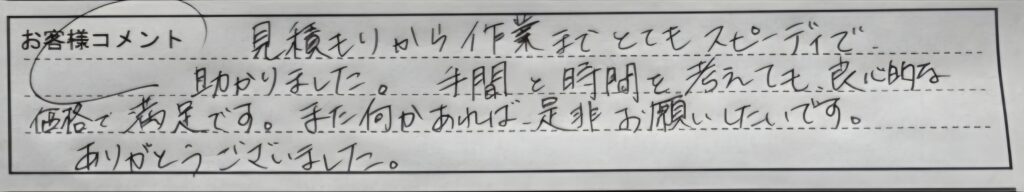 お客様コメント 見積もりから作業までとてもスピーディで、
助かりました。手間と時間を考えても、良心的な
価格で満足です。また何かあれば是非お願いしたいです。
ありがとうございました。